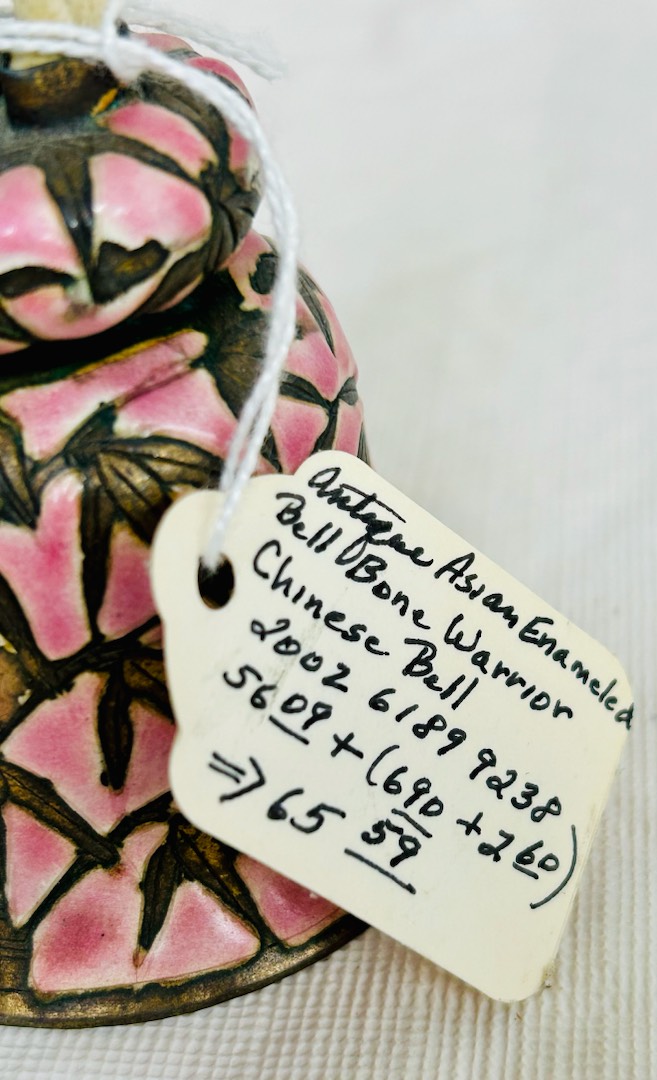 Antique Asian Enameled
Bell Bone Warrior
Chinese Bell
2002 61899238
56 09 + (6 90 + 2 60)
=> 65 59